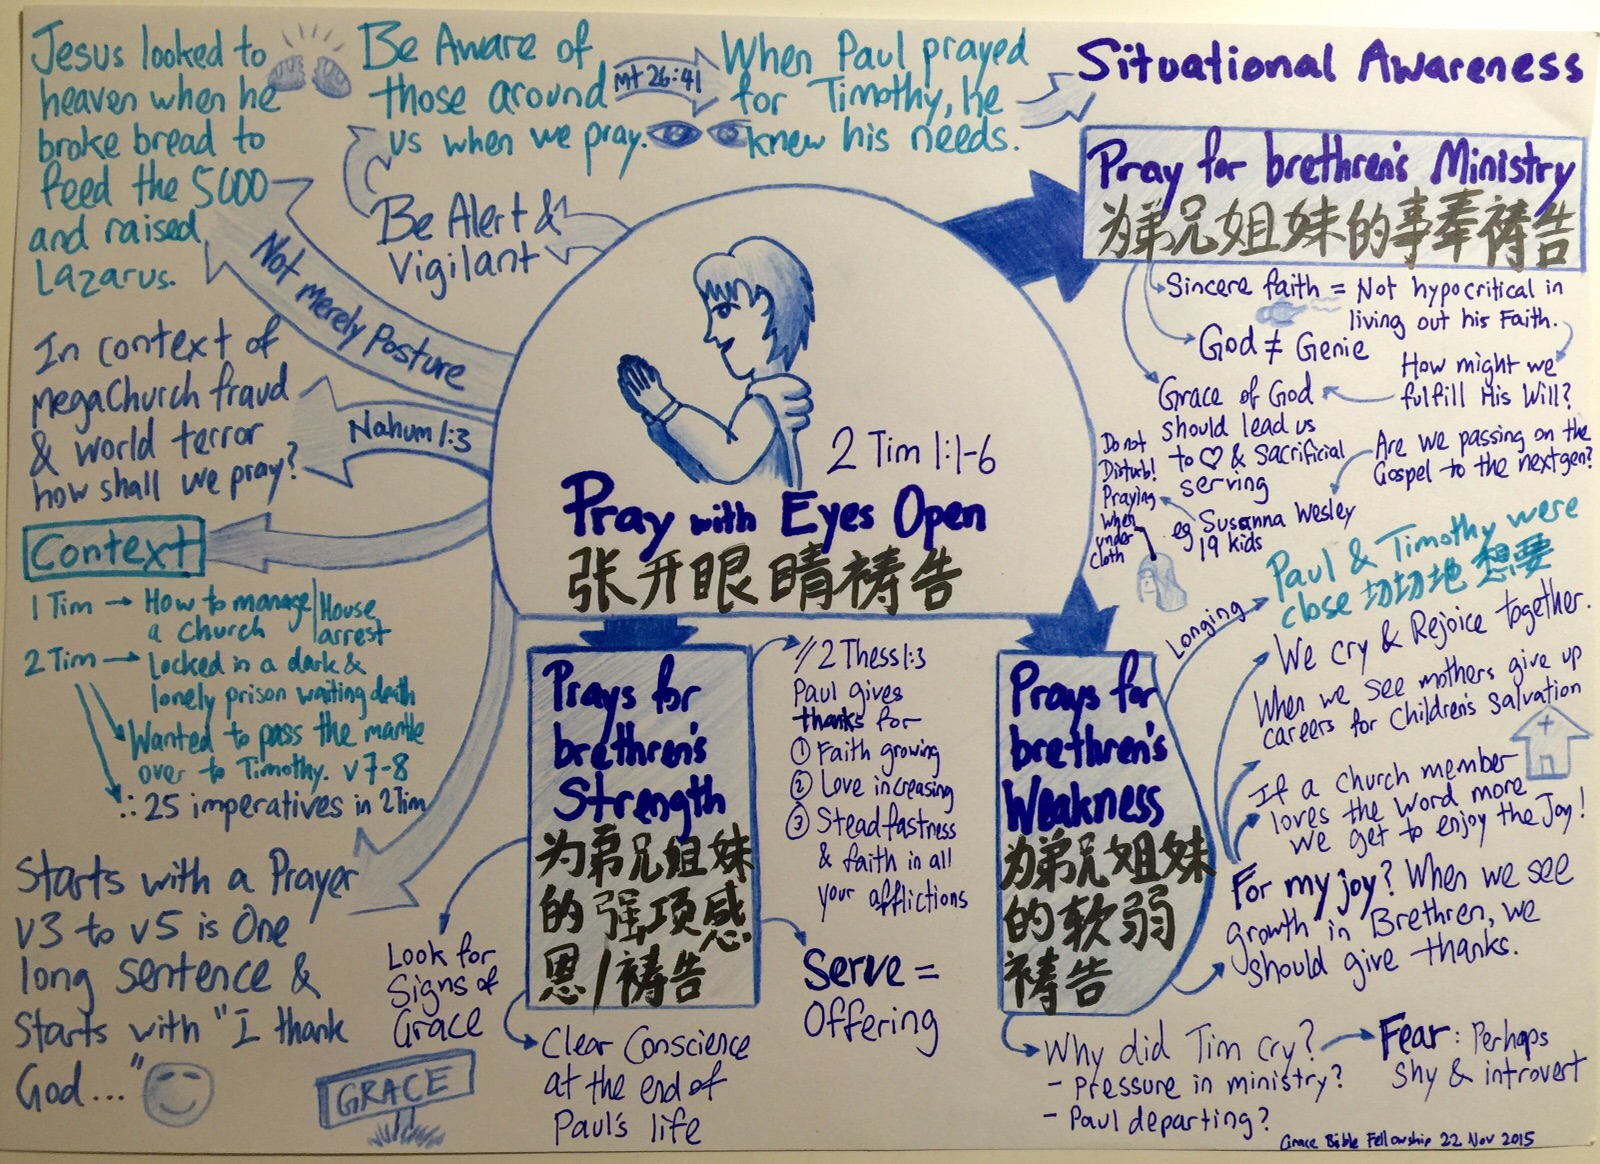 Jesus looked to
heaven when he
broke bread to
feed the 5000
and raised
Lazarus.
Be Aware of
those around
us when we pray.
Mt 26:41
When Paul prayed
for Timothy, he
knew his needs.
Situational Awareness
Be Alert &
Vigilant
Not Merely Posture
In context of
megaChurch fraud
& world terror
how shall we pray?
Nahum 1:3
2 Tim 1:1-6
Pray with Eyes Open
张开眼睛祷告
Context
1 Tim → How to manage
a church
House
arrest
2 Tim → Locked in a dark &
lonely prison waiting death
Wanted to pass the mantle
over to Timothy. v7-8
∴ 25 imperatives in 2Tim
Starts with a Prayer
v3 to v5 is One
long sentence &
Starts with "I thank
God..."
GRACE
Prays for
brethren's
Strength
为弟兄姐妹
的强项感
恩/祷告
Look for
Signs of
Grace
Clear Conscience
at the end of
Paul's life
// 2 Thess 1:3
Paul gives
thanks for
① Faith growing
② Love increasing
③ Steadfastness
& faith in all
your afflictions
Serve =
Offering
Prays for
brethren's
Weakness
为弟兄姐妹
的软弱
祷告
Why did Tim cry?
- Pressure in ministry?
- Paul departing?
Fear: Perhaps
Shy & introvert
Longing
Paul & Timothy were
close 切切地想要
We cry & Rejoice together.
When we see mothers give up
careers for Children's Salvation
If a church member
loves the Word more
we get to enjoy the Joy!
For my joy? When we see
growth in Brethren, we
should give thanks.
Pray for brethren's Ministry
为弟兄姐妹的事奉祷告
Sincere faith = Not hypocritical in
living out his Faith.
God ≠ Genie
How might we
fulfill His Will?
Grace of God
should lead us
to ♡ & Sacrificial
serving
Are we passing on the
Gospel to the next gen?
eg Susanna Wesley
19 kids
Do not
Disturb!
Praying
when
under
cloth
Grace Bible Fellowship 22 Nov 2015